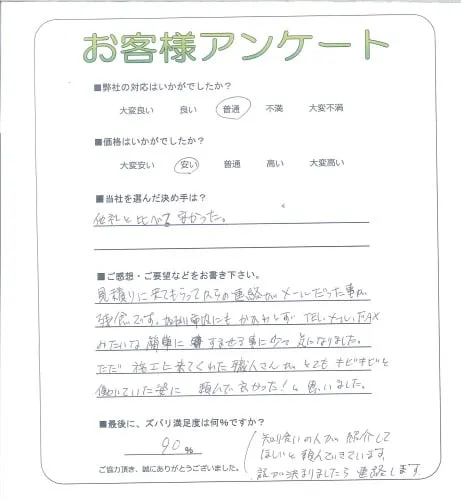 お客様アンケート
■弊社の対応はいかがでしたか？
大変良い 良い 普通 不満 大変不満
■価格はいかがでしたか？
大変安い 安い 普通 高い 大変高い
■当社を選んだ決め手は？
他社と比べる 安かった。
■ご感想・ご要望などをお書き下さい。
見積りに来てもらってからの連絡がメールだった事が
残念です。 市内にもかかわらず TEL、メール、FAX
みたいな簡単に すませる事に少々 気になりました。
ただ 施工に来てくれた職人さんが、とても キビキビと
働いていた姿に 頼んで良かった！と思いました。
■最後に、ズバリ満足度は何％ですか？
90 ％
知り合いの人が 紹介して
ほしいと頼んできています
話が決まりましたら 連絡します
ご協力頂き、誠にありがとうございました。